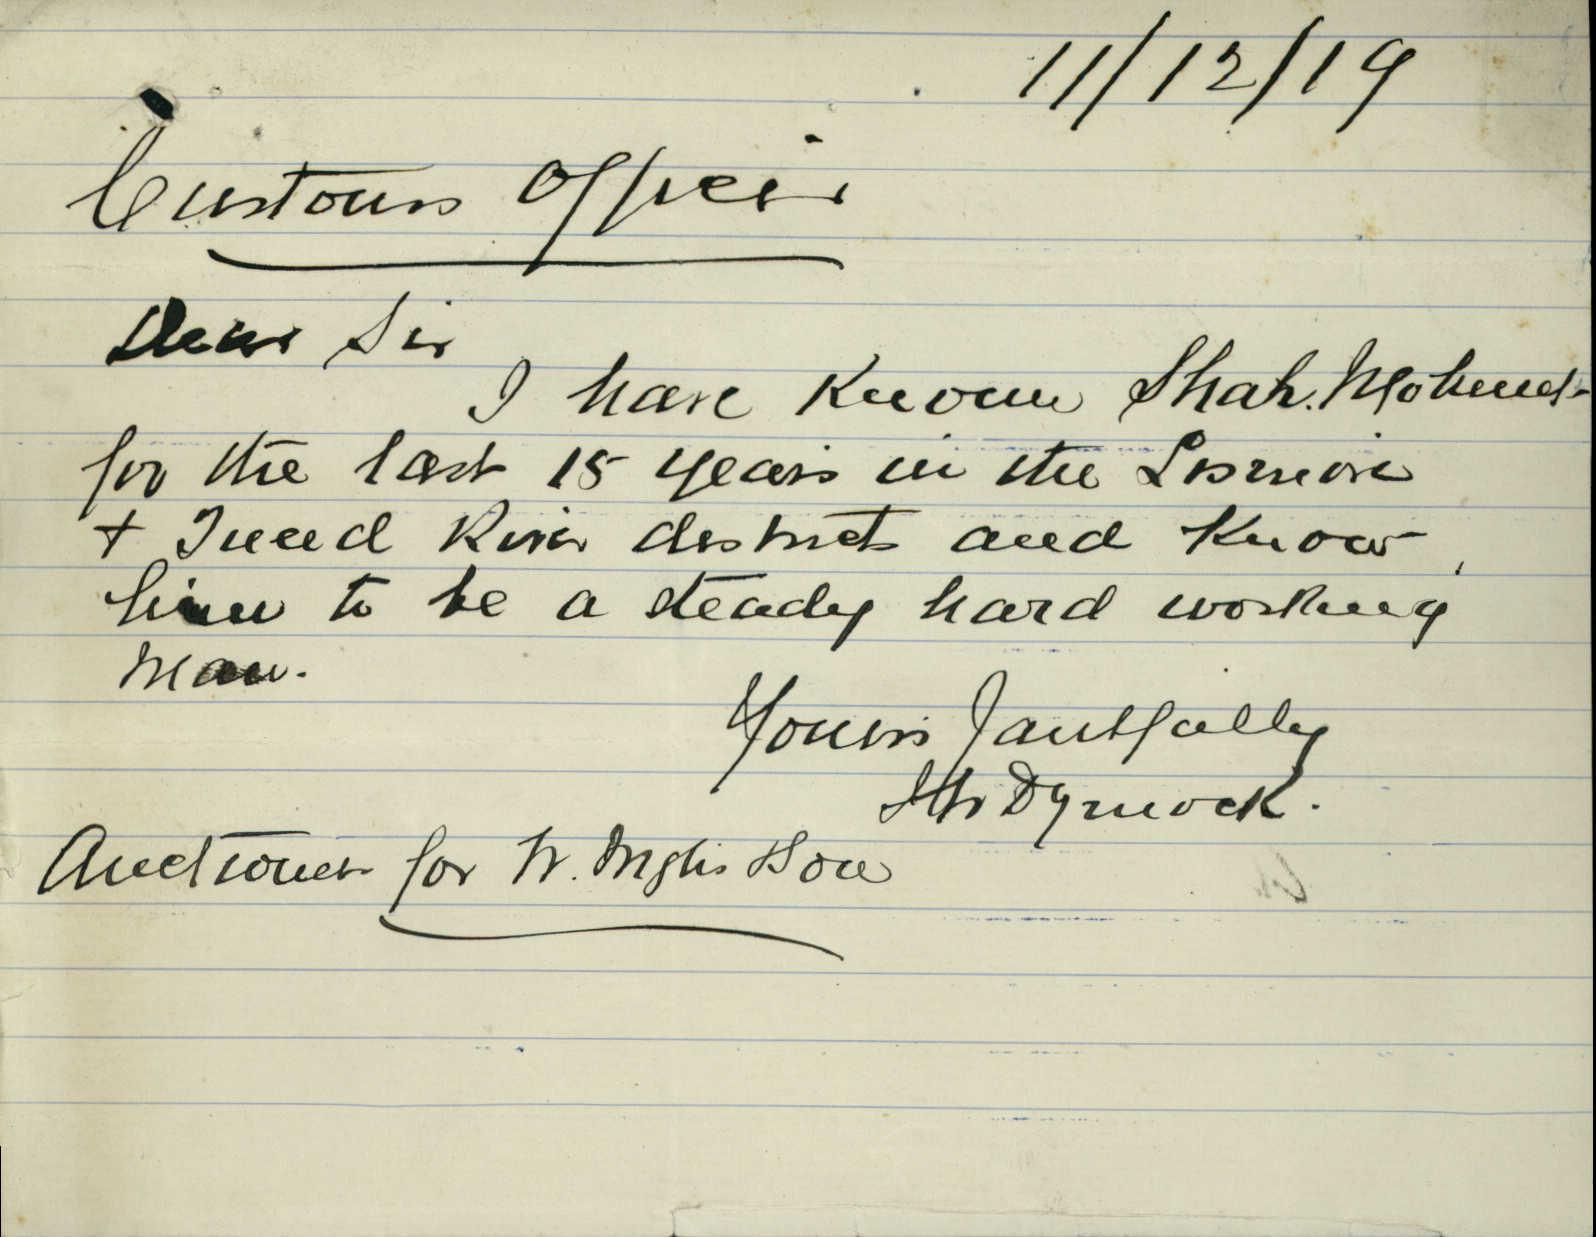 11/12/19
Customs Officer
Dear Sir
I have known Shah. Mohmed
for the last 15 years in the Lismore
+ Tweed River districts and know
him to be a steady hard working
man.
Yours Faithfully
Dymock.
Auctioneer for W. Inglis & Son